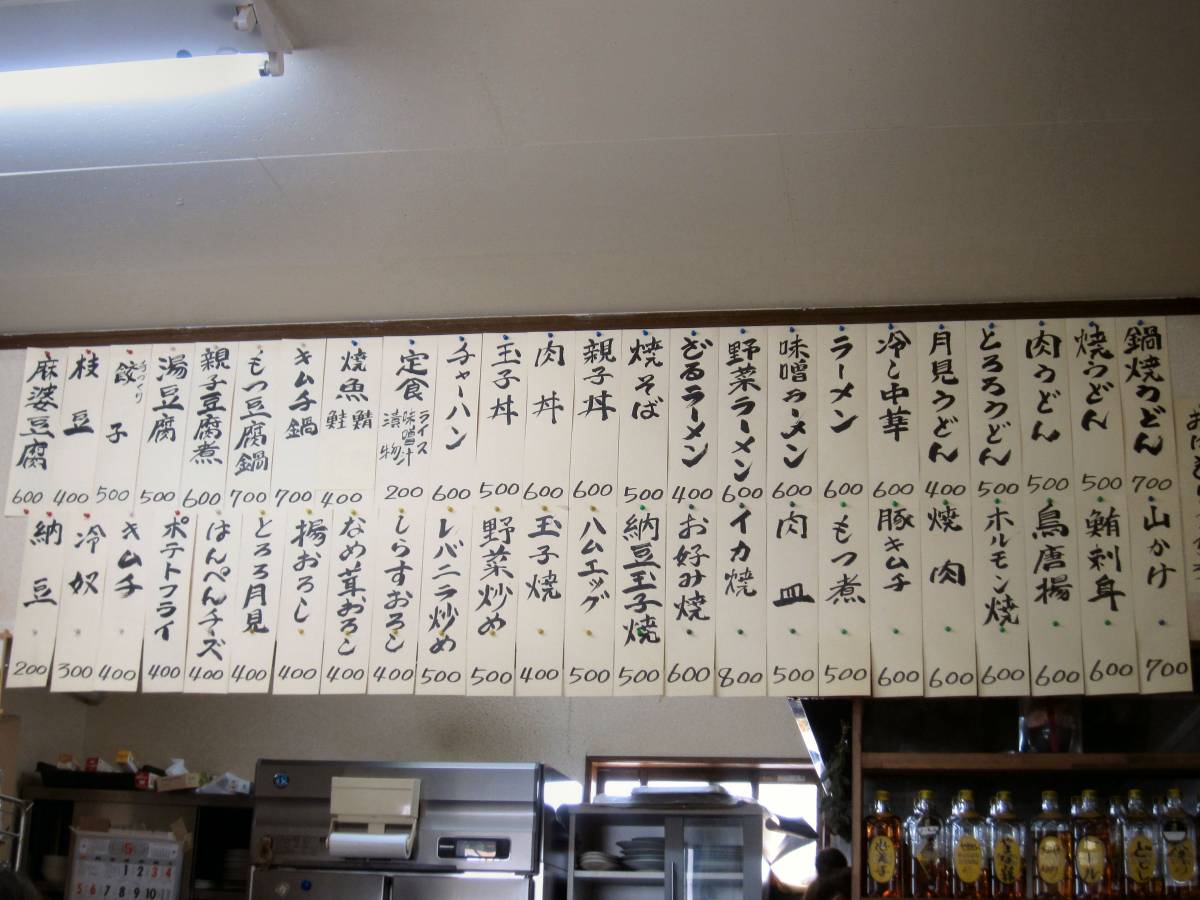 鍋焼うどん 700
焼うどん 500
肉うどん 500
とろろうどん 500
月見うどん 400
冷し中華 600
ラーメン 600
味噌ラーメン 600
野菜ラーメン 600
ざるラーメン 400
焼そば 500
親子丼 600
肉丼 600
玉子丼 500
チャーハン 600
定食 ライス 味噌汁 漬物 200
焼魚 鯖 鮭 400
キムチ鍋 700
もつ豆腐鍋 700
親子豆腐煮 600
湯豆腐 500
餃子 500
枝豆 400
麻婆豆腐 600
山かけ 700
鮪刺身 600
鳥唐揚 600
ホルモン焼 600
焼肉 600
豚キムチ 600
もつ煮 500
肉皿 500
イカ焼 800
お好み焼 600
納豆玉子焼 500
ハムエッグ 500
玉子焼 400
野菜炒め 500
レバニラ炒め 500
しらすおろし 400
なめ茸おろし 400
揚おろし 400
とろろ月見 400
はんぺんチーズ 400
ポテトフライ 400
キムチ 400
冷奴 300
納豆 200
5
1 2 3 4
5 6 7 8 9 10 11